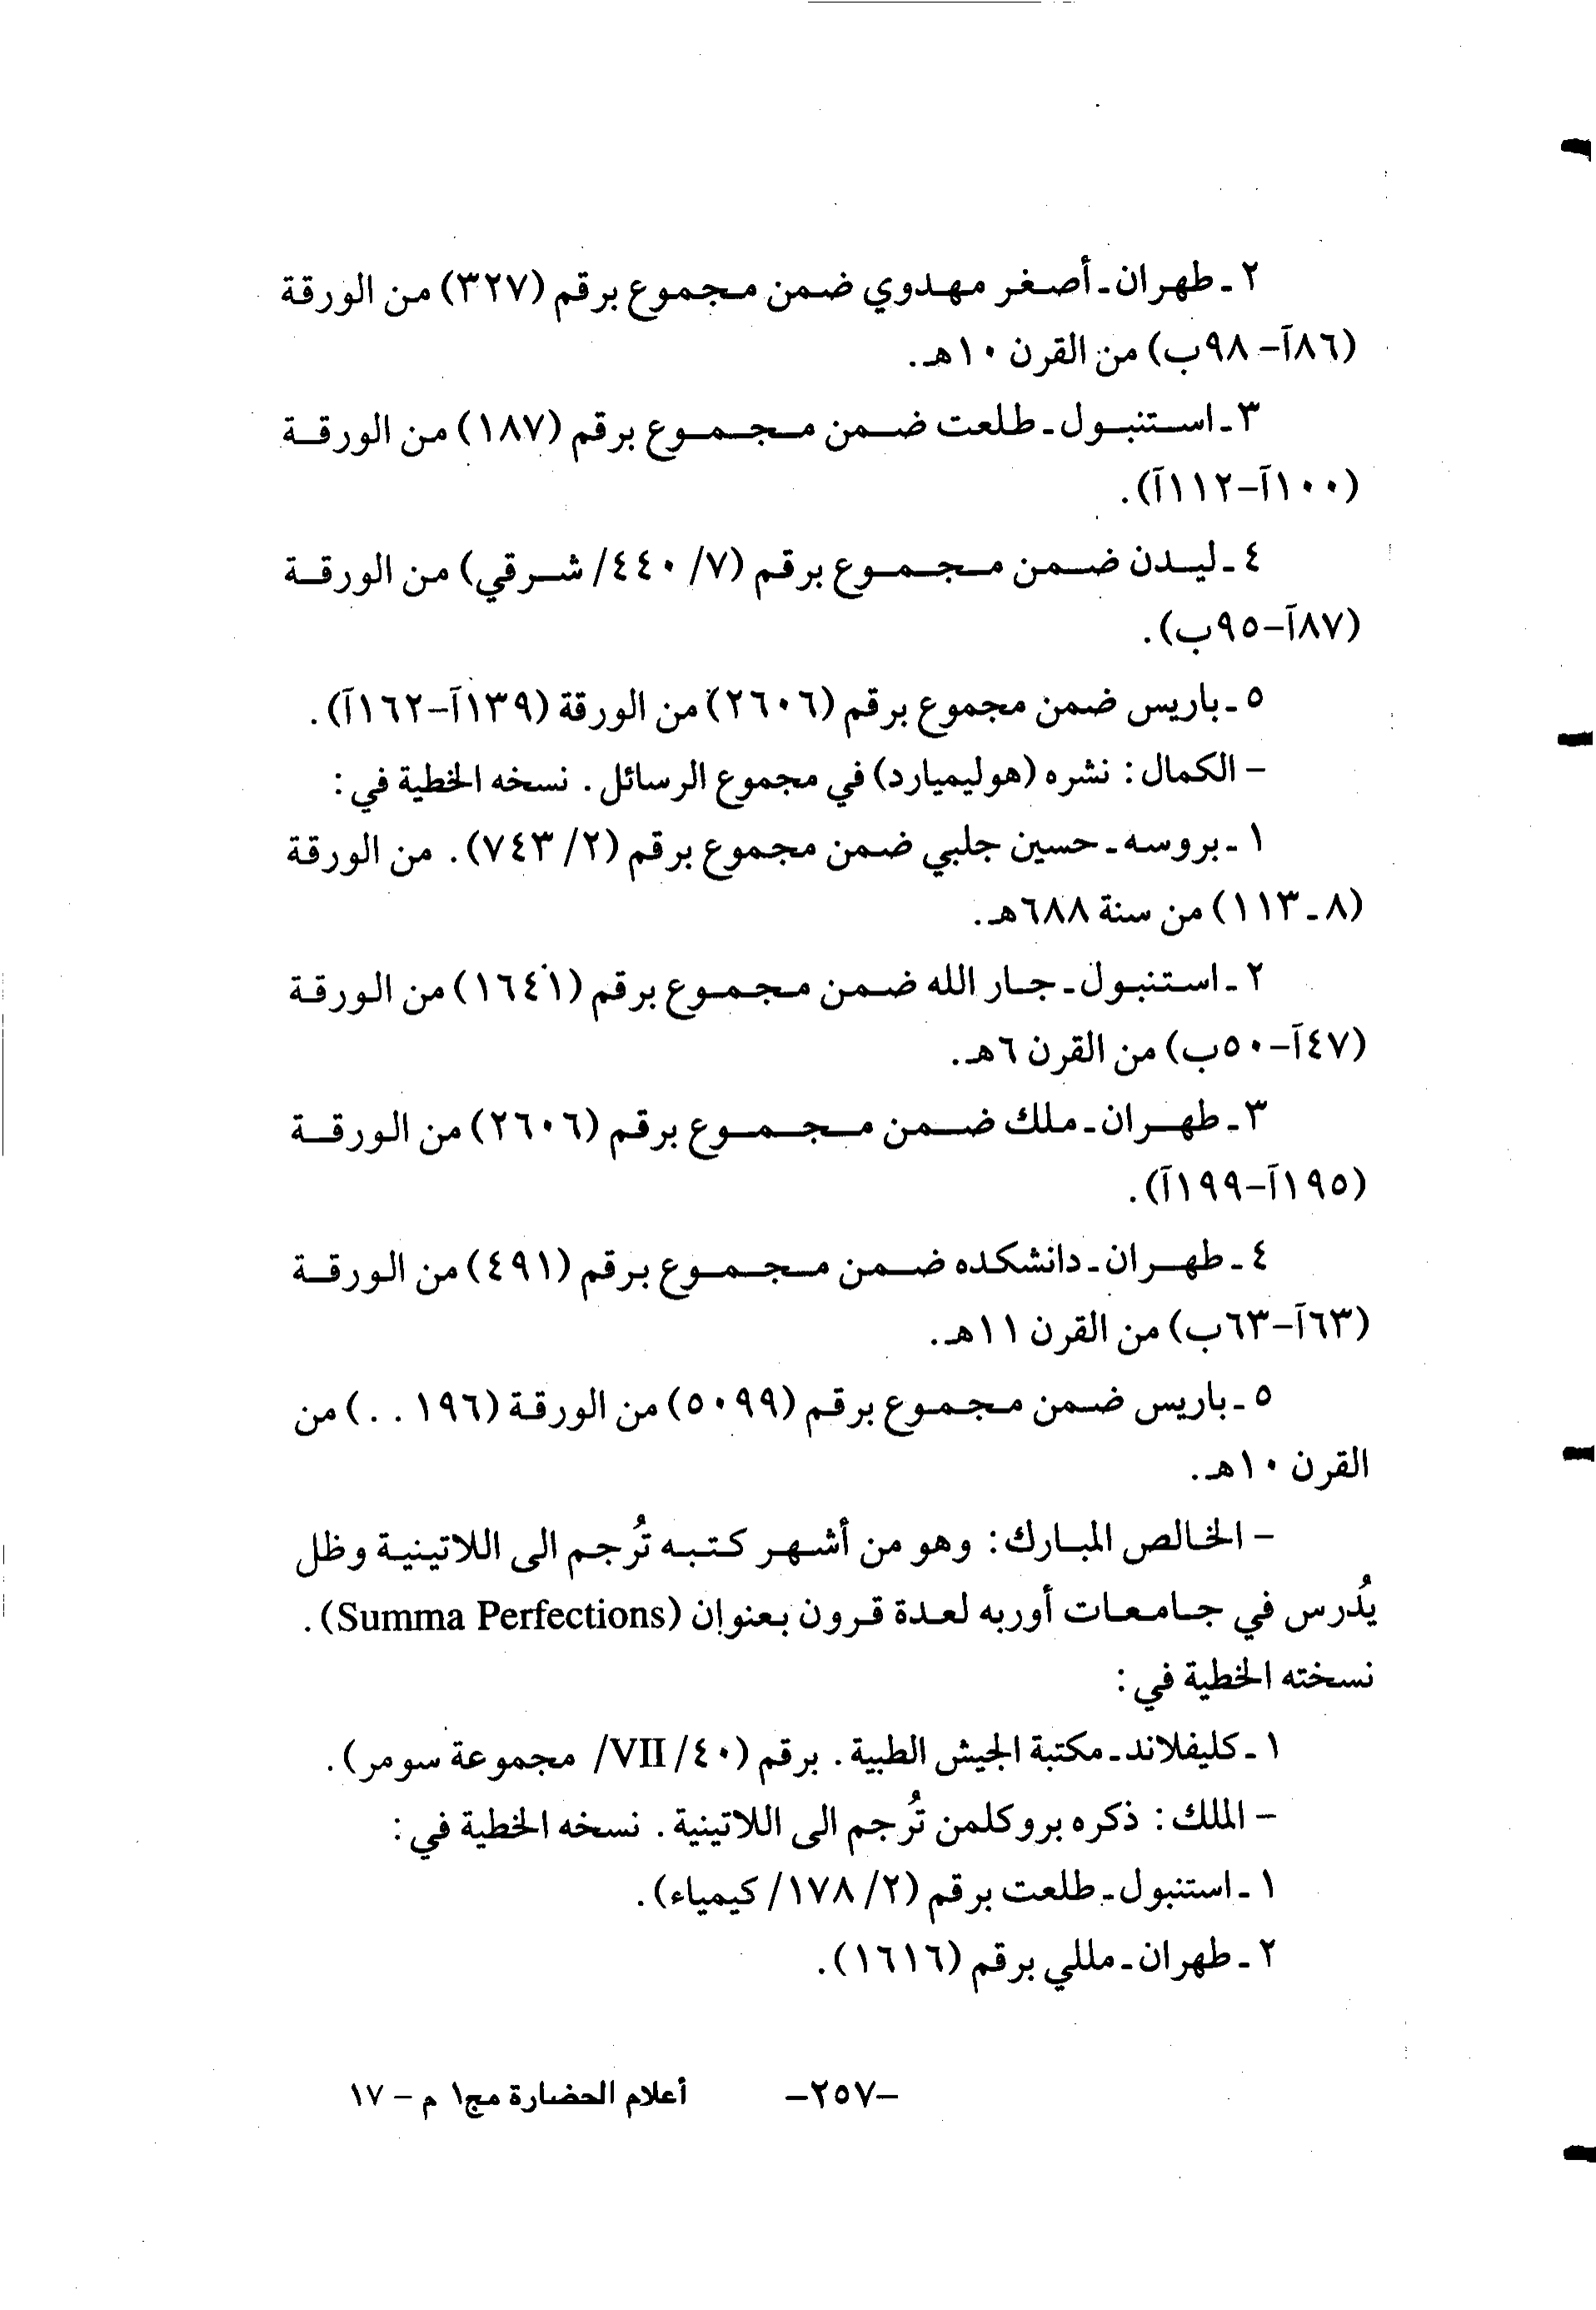 ٢ ـ طهران ـ أصغر مهدوي ضمن مجموع برقم (٣٢٧) من الورقة
(٨٦آ – ٩٨ب) من القرن ١٠هـ.
٣ ـ استنبول ـ طلعت ضمن مجموع برقم (١٨٧) من الورقة
(١٠٠آ–١١٢آ).
٤ ـ ليدن ضمن مجموع برقم (٧/ ٤٤٠/ شرقي) من الورقة
(٨٧آ–٩٥ب).
٥ ـ باريس ضمن مجموع برقم (٢٦٠٦) من الورقة (١٣٩آ–١٦٢آ).
– الكمال: نشره (هوليميارد) في مجموع الرسائل. نسخه الخطية في:
١ ـ بروسه ـ حسين جلبي ضمن مجموع برقم (٢/ ٧٤٣). من الورقة
(٨ ـ ١١٣) من سنة ٦٨٨هـ.
٢ ـ استنبول ـ جار الله ضمن مجموع برقم (١٦٤١) من الورقة
(٤٧آ–٥٠ب) من القرن ٦هـ.
٣ ـ طهران ـ ملك ضمن مجموع برقم (٢٦٠٦) من الورقة
(١٩٥آ–١٩٩آ).
٤ ـ طهران ـ دانشكده ضمن مجموع برقم (٤٩١) من الورقة
(٦٣آ–٦٣ب) من القرن ١١هـ.
٥ ـ باريس ضمن مجموع برقم (٥٠٩٩) من الورقة (١٩٦ . .) من
القرن ١٠هـ.
– الخالص المبارك: وهو من أشهر كتبه تُرجم الى اللاتينية وظل
يُدرس في جامعات أوربه لعدة قرون بعنوان (Summa Perfections).
نسخته الخطية في:
١ ـ كليفلاند ـ مكتبة الجيش الطبية. برقم (٤٠/ VII/ مجموعة سومر).
– الملك: ذكره بروكلمن تُرجم الى اللاتينية. نسخه الخطية في:
١ ـ استنبول ـ طلعت برقم (٢/ ١٧٨/ كيمياء).
٢ ـ طهران ـ مللي برقم (١٦١٦).
–٢٥٧– أعلام الحضارة مج١ م – ١٧